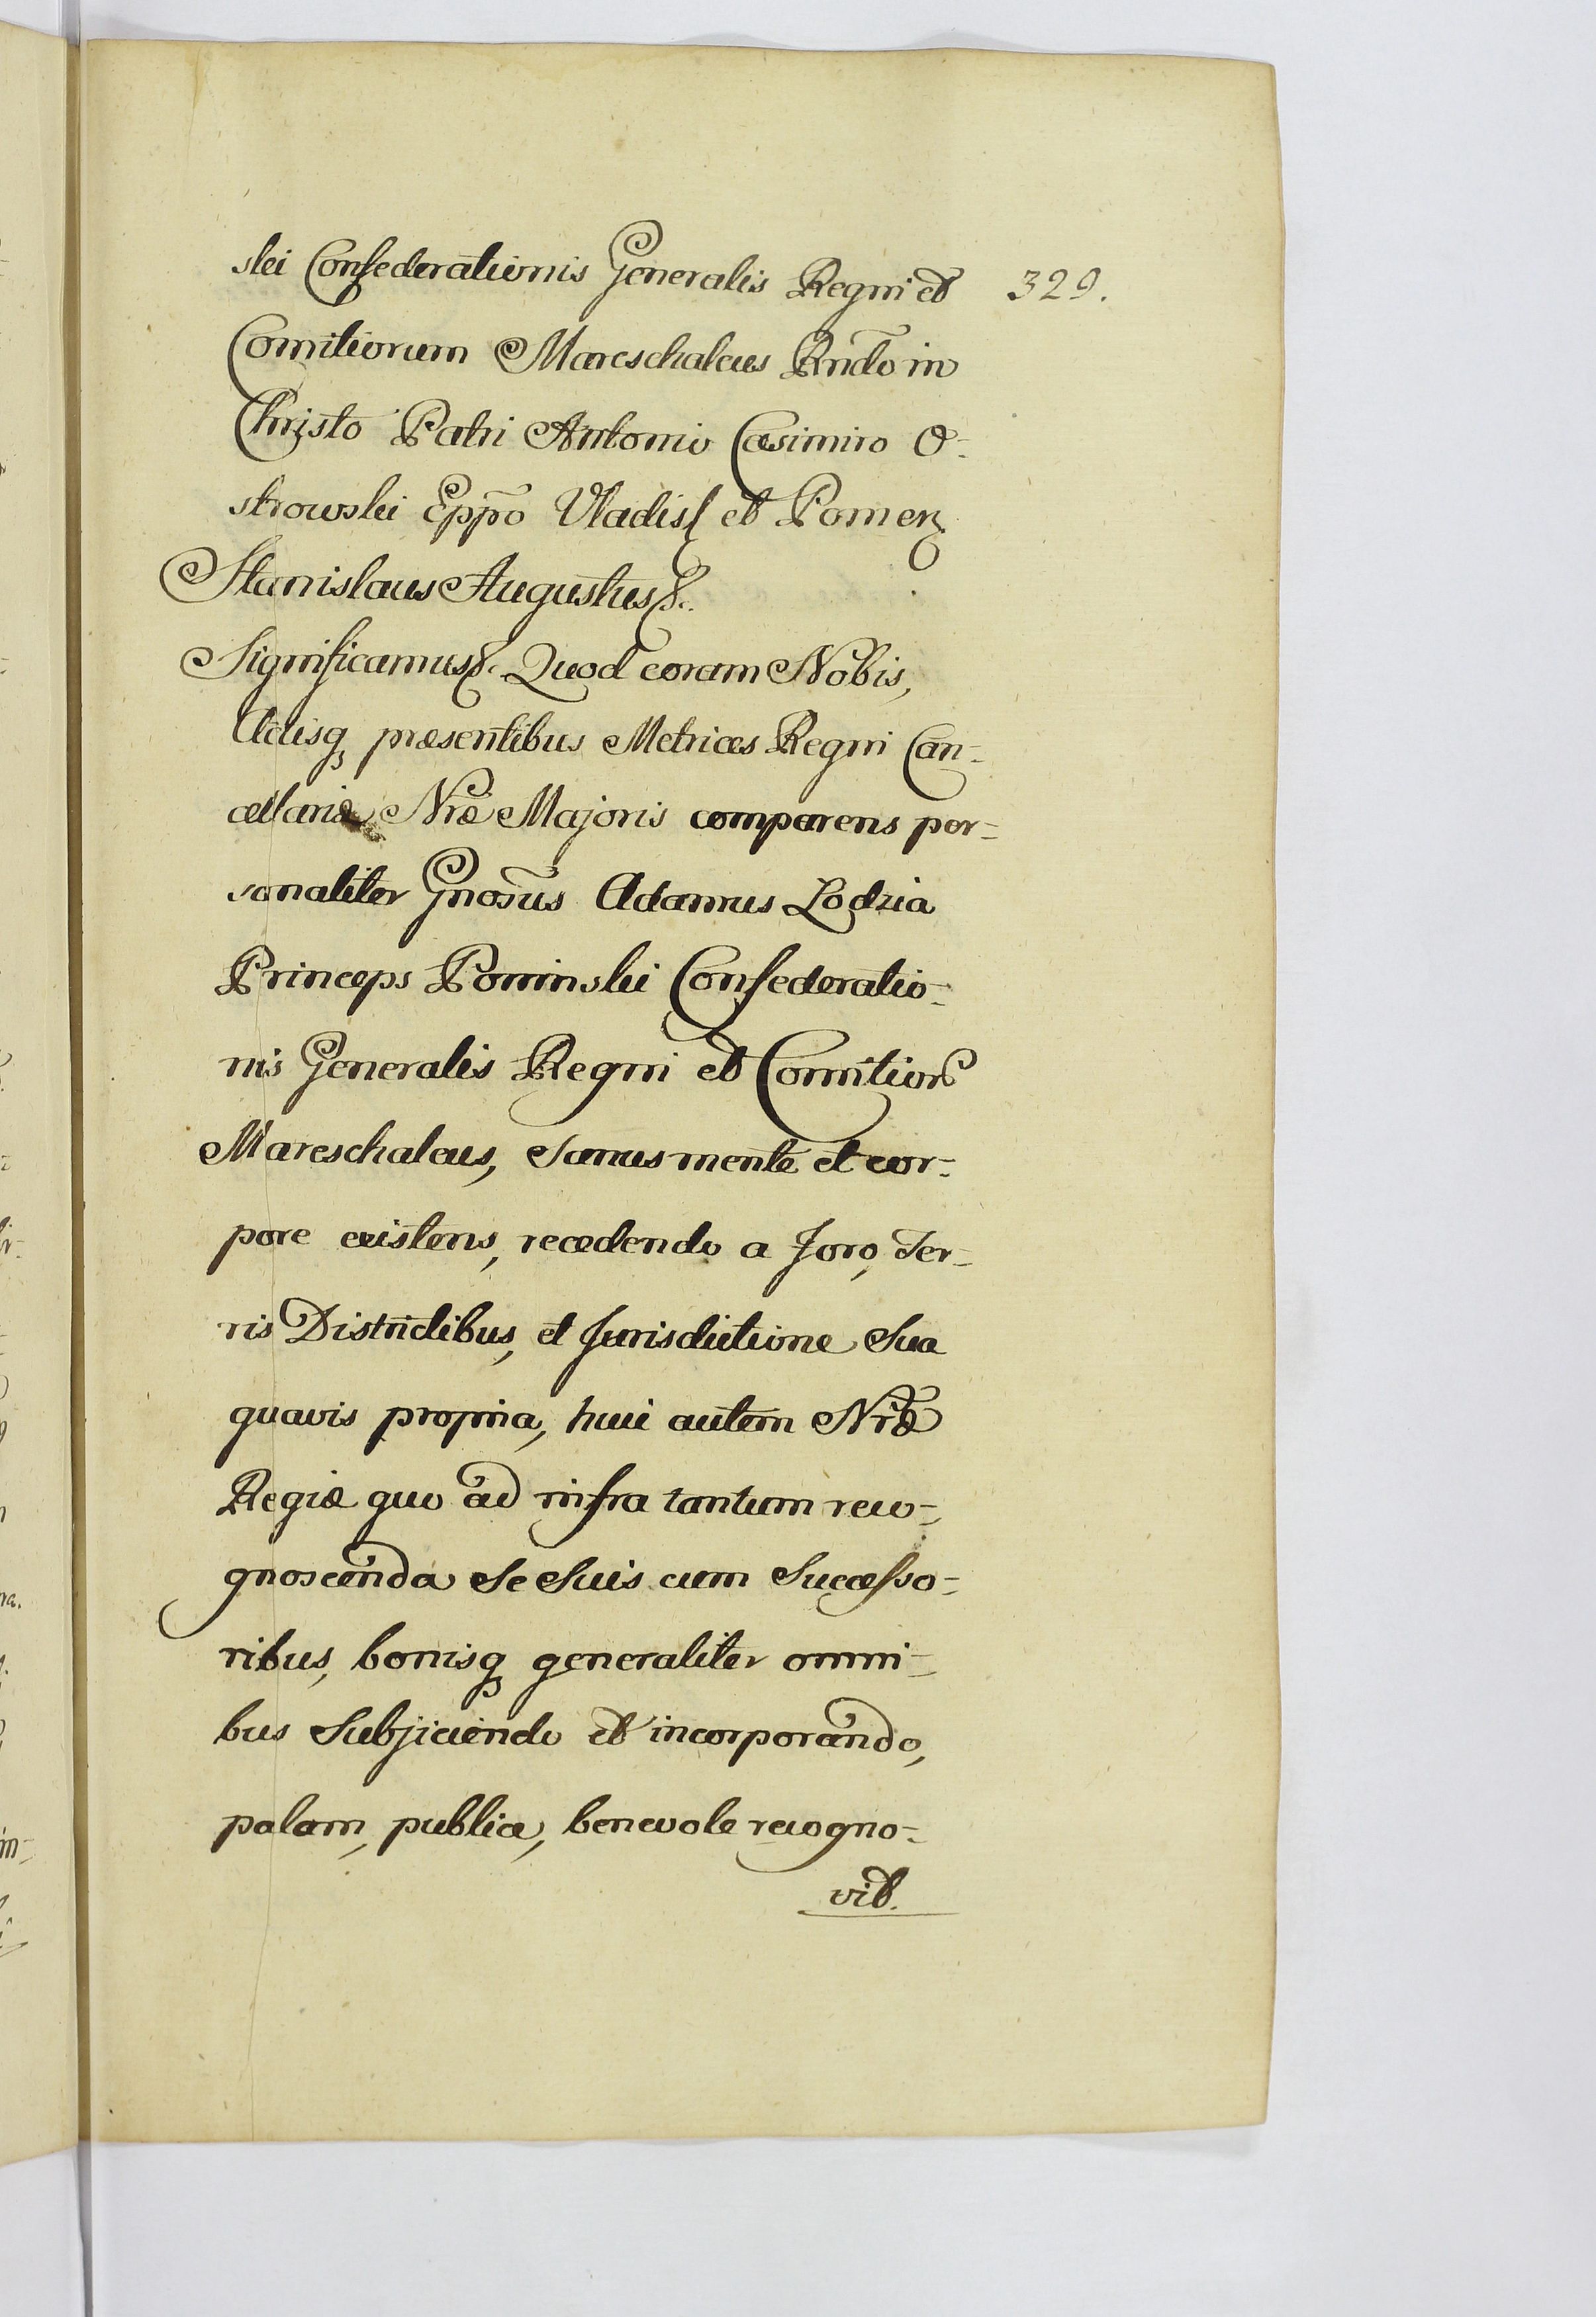 ski Confederationis Generalis Regni et 329.
Comitiorum Mareschalcus Rndo in
Christo Patri Antonio Casimiro O-
strowski Eppo Vladisl et Pomer
Stanislaus Augustus &.
Significamus &. Quod coram Nobis,
Actisq præsentibus Metrices Regni Can-
cellariæ Nræ Majoris comparens per-
sonaliter Gnosus Adamus Lodzia
Princeps Poninski Confederatio-
nis Generalis Regni et Comitior
Mareschalcus, Sanus mente et cor-
pore existens, recedendo a Foro, Ter-
ris Districtibus, et Jurisdictione Sua
quavis propria, huic autem Nræ
Regiæ quo ad infra tantum reco-
gnoscenda Se Suis cum Successo-
ribus, bonisq generaliter omni-
bus Subjiciendo et incorporando,
palam, publice, benevole recogno-
vit.